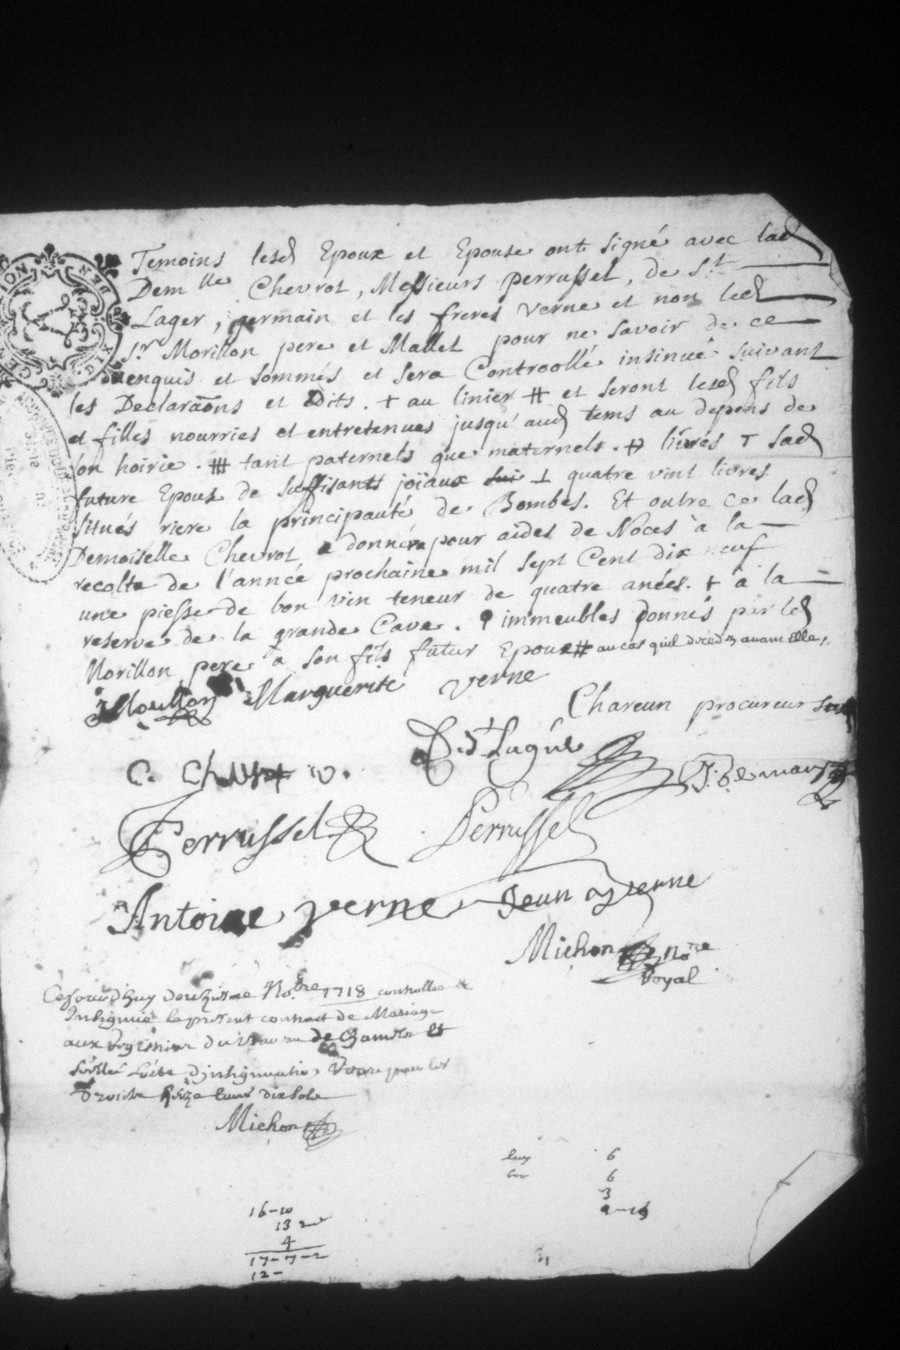 Temoins lesd Epoux et Epouse ont signé avec lad
Demlle Chevrot, Messieurs Perrussel, de St
Lager, germain et les freres Verne et non led
Sr Morillon pere et Mallet pour ne savoir de ce
enquis et sommés et sera Controollé insinué suivant
les Declaraõns et Edits. + au linier # et seront lesd fils
et filles nourries et entretenues jusqu'aud tems au depens de
son hoirie. # tant paternels que maternels. # livres T sad
future Epoux de suffisants joïaux ⊥ quatre vint livres
situés riere la principauté de Bombes. Et outre ce lad
Demoiselle Chevrot a donné pour aides de Noces à la
recolte de l'année prochaine mil sept Cent dix neuf
une piesse de bon vin teneur de quatre anées. + à la
reserve de la grande Cave. immeubles donnés par led
Morillon pere a son fils futur Epoux # au cas quil decede avant elle.
Morillon Marguerite verne
Chareun procureur
C. Chevrot D. St Lager
Perrussel Perrussel
Antoine verne Jean verne
Michon nore
Royal
Cejourdhuy douziesme No.bre 1718 controllé &
Insignué le present contract de Mariage
aux Registres du Bureau de
droits seize livres dix sols
Michon
6
6
3
16-10
13
4
17-7-2
12-